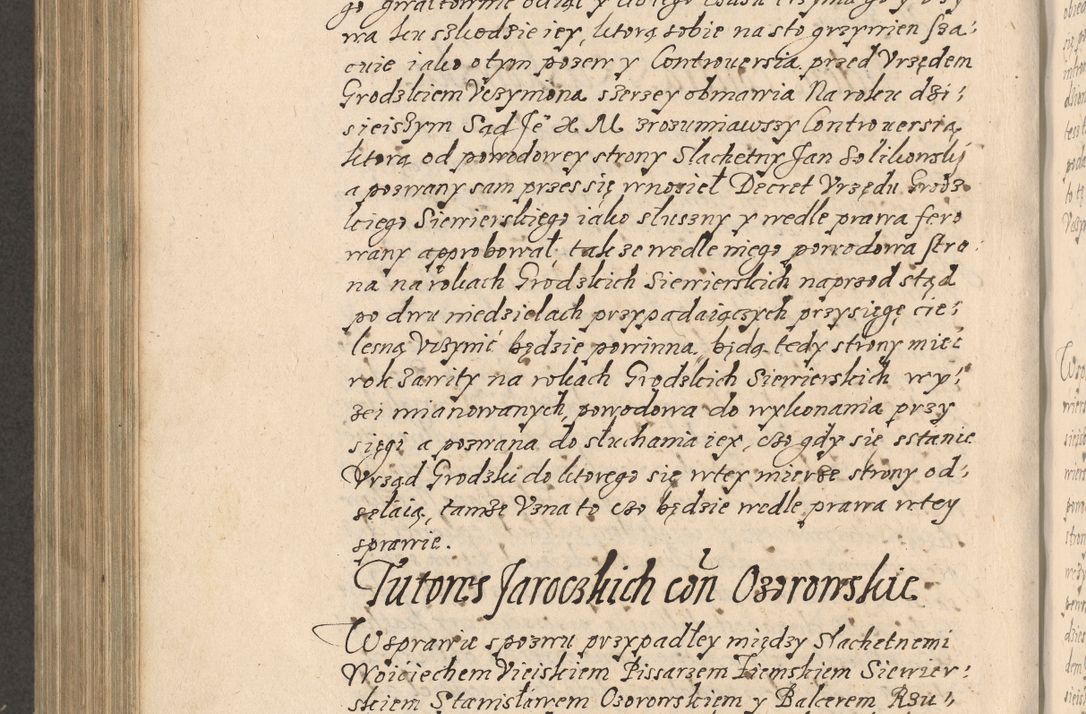 wa ku szkodzie iey, ktorą sobie na sto grzywien sza⸗
cuie iako o tym pozew y Controversia przed Vrzędem
Grodzkiem Vczymona szerzey obmawia Na roku dzi⸗
sieiszym Sąd Je° X M zrozumiawszy Controuersią,
ktorą od powodowey strony Slachetny Jan Solikowski
a pozwany sam przes się wnosieł Decret Vrzędu Grodz
kiego Siewierskiego iako słuszny y wedle prawa fero
wany approbował, tak ze wedle niego powodowa stro
na na rokach Grodzkich Siewierskich naprzod stąd
po dwu niedzielach przypadaiących przysięgę cie⸗
lesną Vczynić będzie powinna, będą tedy strony mieć
rok zawity na rokach Grodzkich Siewierskich wy⸗
zei mianowanych, powodowa do wykonania przy
sięgi a pozwana do słuchania iey, czo gdy się sstanie
Vrząd Grodzki do ktorego się wtey mierze strony od⸗
sęłaią, tamże Vzna to czo będzie wedle prawa wtey
sprawie.
Tutores Jaroczkich con Ozorowskie
W sprawie spozwu przypadłey między Slachetnemi
Woiciechem Vieiskiem Pissarzem Ziemskiem Siewier⸗
skiem Stanisławem Ozorowskiem y Balcerem Rzu⸗